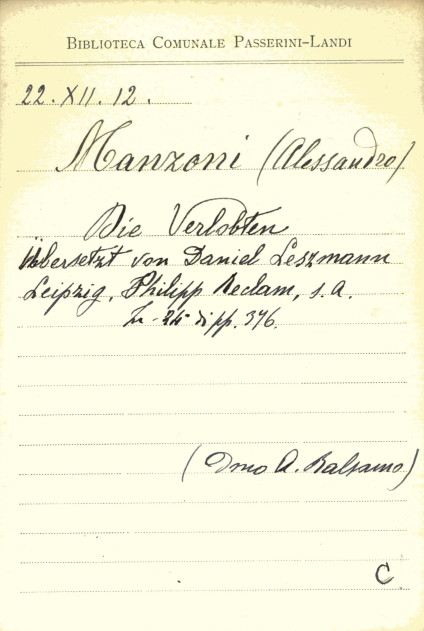 BIBLIOTECA COMUNALE PASSERINI-LANDI
22. XII. 12.
Manzoni (Alessandro)
Die Verlobten
Übersetzt von Daniel Leszmann
Leipzig, Philipp Reclam, s. a.
di pp. 376.
(Dono A. Balsamo)
C